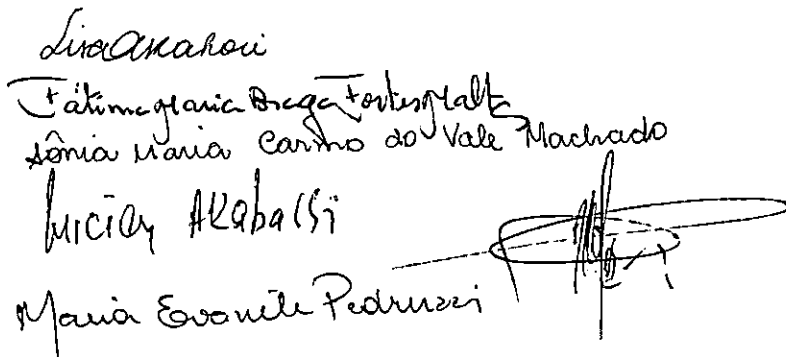 Lisa Akahori
Fátima Maria Braga Fortes Malta
Sônia Maria Carmo do Vale Machado
Akabassi
Maria Evonete Pedruzzi